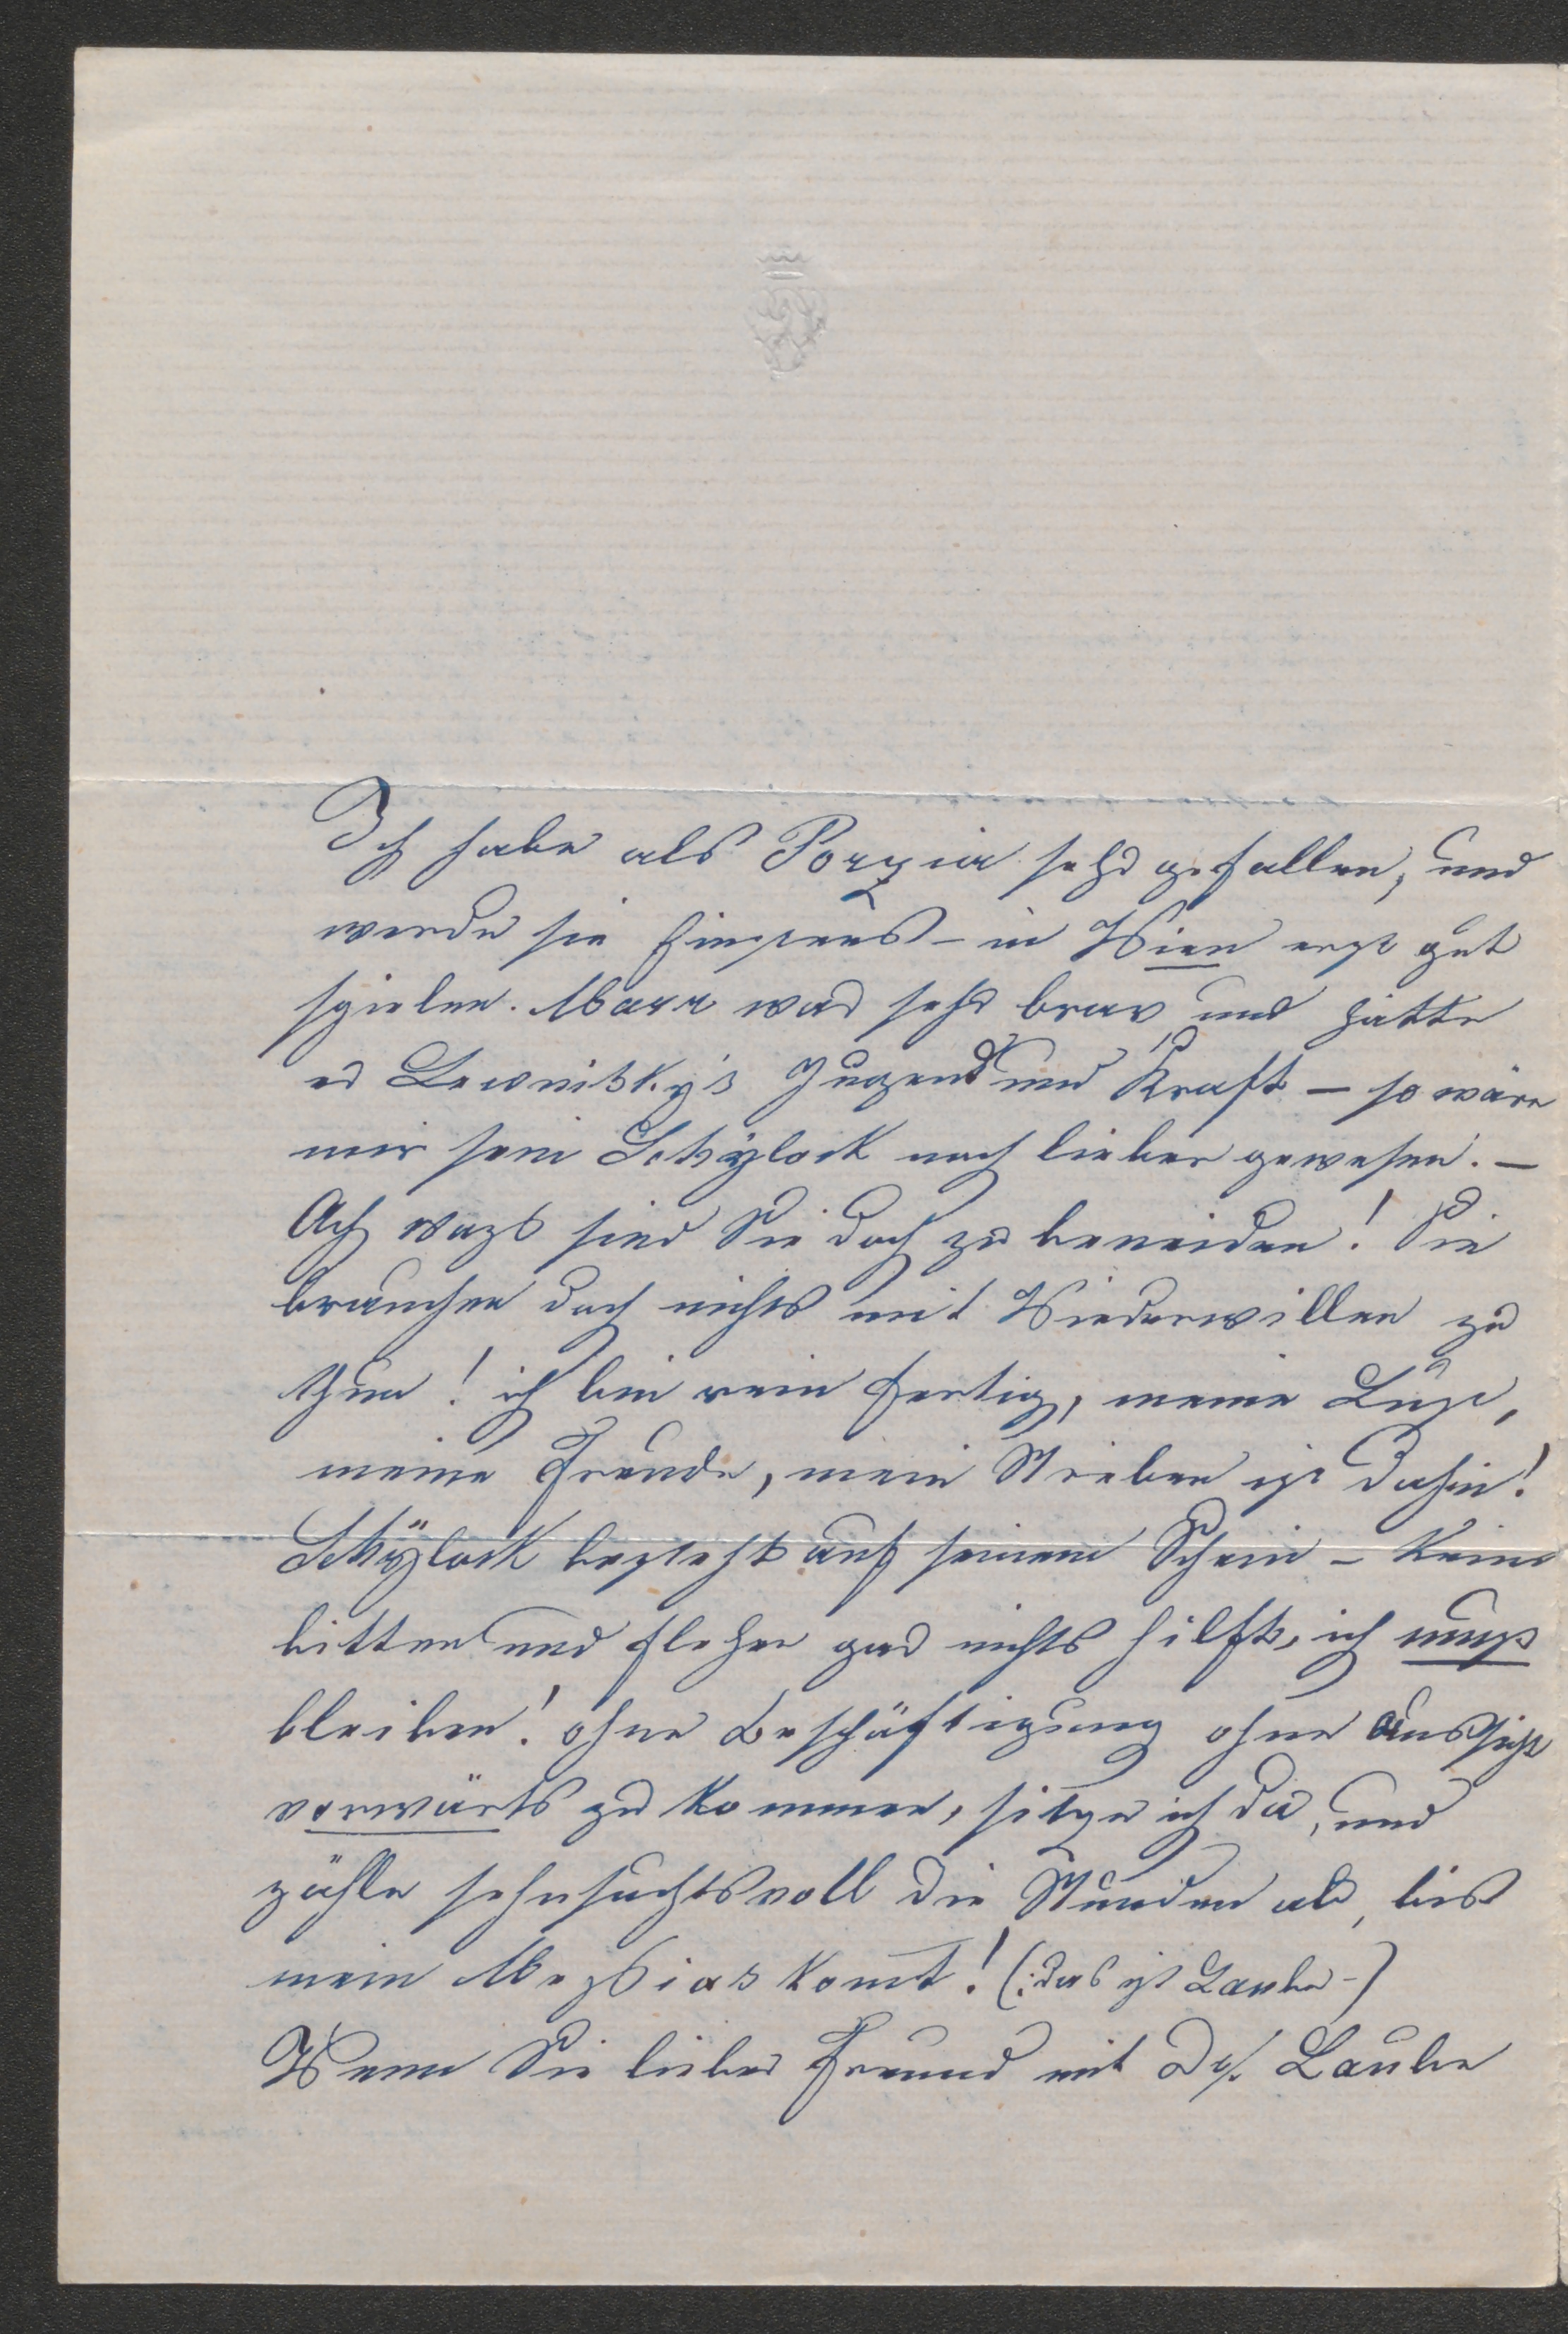 Ich habe als Porzia sehr gefallen, und
werde sie hinzens – in Wien erst gut
spielen. Marr war sehr brav und hätte
er Lewinsky's Jugend und Kraft – so wäre
mir sein Schÿlock noch lieber gewesen. –
Ach was sind Sie doch zu beneiden! Sie
brauchen doch nichts mit Wiederwillen zu
thun! ich bin rein fertig, meine Lust,
meine Freude, mein Streben ist dahin!
Schÿlock besteht auf seinem Schein – kein
bitten und flehen gar nichts hilft, ich muß
bleiben! ohne Beschäftigung ohne Aussicht
vorwärts zu kommen, sitze ich da, und
zähle sehnsuchtsvoll die Stunden ab, bis
mein Messias komt! (: das ist Laube –)
Wenn Sie lieber Freund mit Dr. Laube